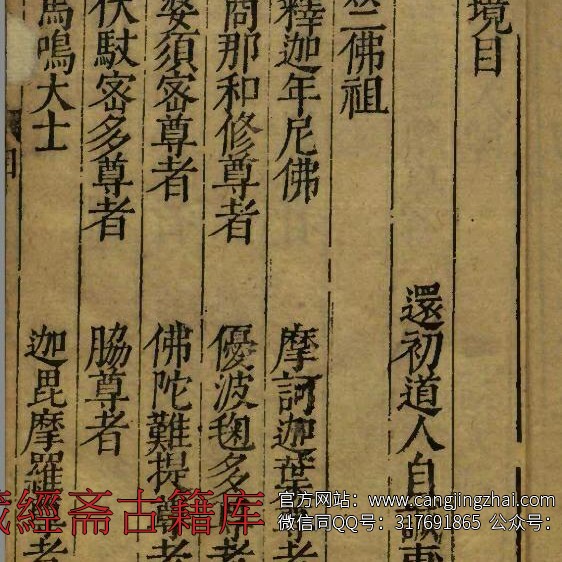 境目
還初道人自誠
三佛祖
釋迦牟尼佛　摩訶迦葉尊者
商那和修尊者　優波毱多尊者
婆須密尊者　佛陀難提尊者
伏馱密多尊者　脇尊者
馬鳴大士　迦毘摩羅尊者
藏經斋古籍库
官方网站：www.cangjingzhai.com
微信同QQ号：317691865 公众号：